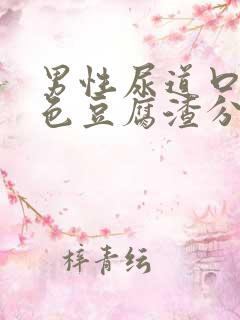 男性尿道口
色豆腐渣分
梓青纭